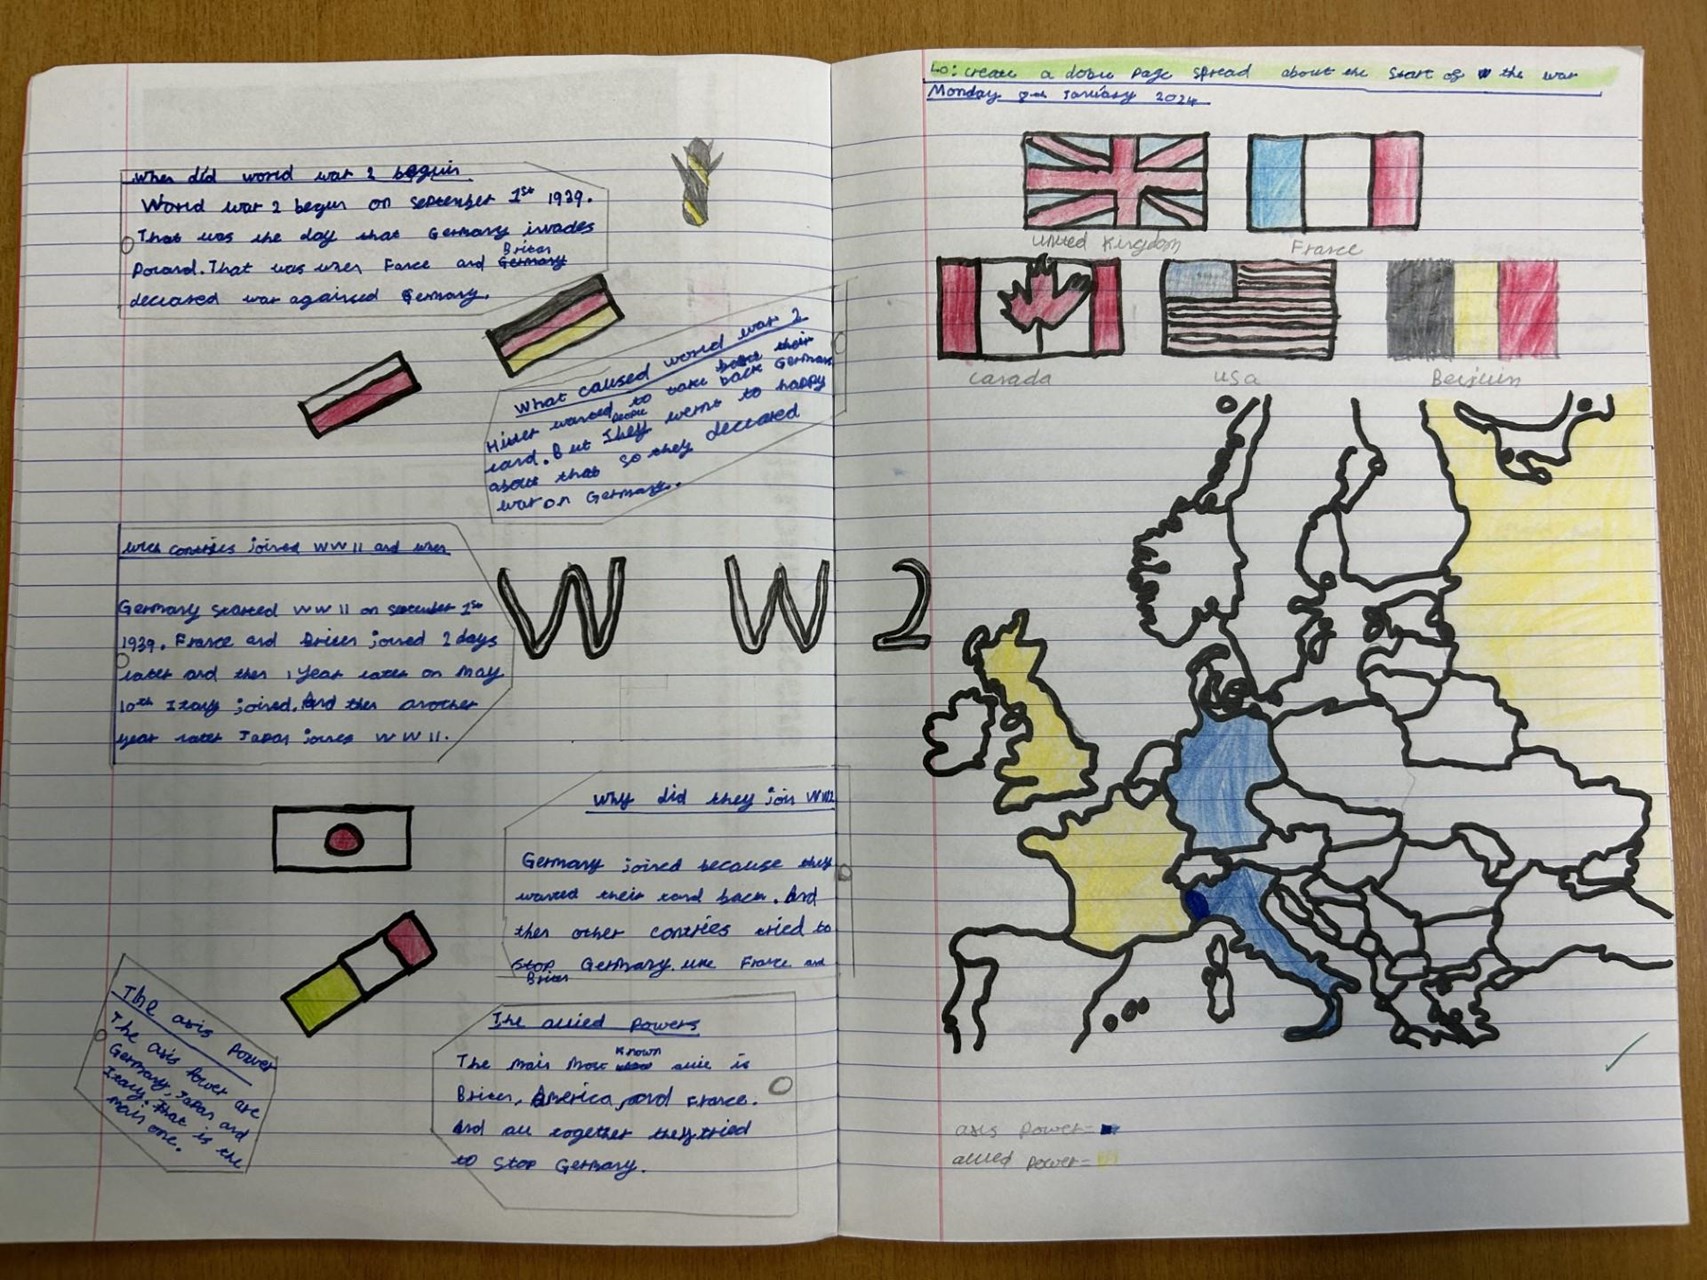 When did world war 2 beguin
World war 2 begun on september 1st 1939.
That was the day that Germany invades
Poland. That was when Farce and Briten Germany
declared war againsed Germany.
What caused world war 2
Hitler wanted to take back their
land. But people They weren't to happy
about that so they declared
war on Germany.
Wich contries joined WW11 and when
Germany started WW11 on september 1st
1939. France and Briten joined 2 days
later and then 1 year later on May
10th Italy joined. And then another
year later Japan joines WW11.
W W 2
Why did they join WW2
Germany joined because they
wanted their land back. And
then other contries tried to
stop Germany like France and
Briten
The axis power
The axis Power are
Germany, Japan and
Italy. That is the
main one.
The allied powers
The main most known allie is
Briten, America, and France.
And all together they tried
to stop Germany.
Lo: create a doble page spread about the start of the war
Monday 8th January 2024
United Kingdom
France
Canada
USA
Beljium
axis power=
allied power=